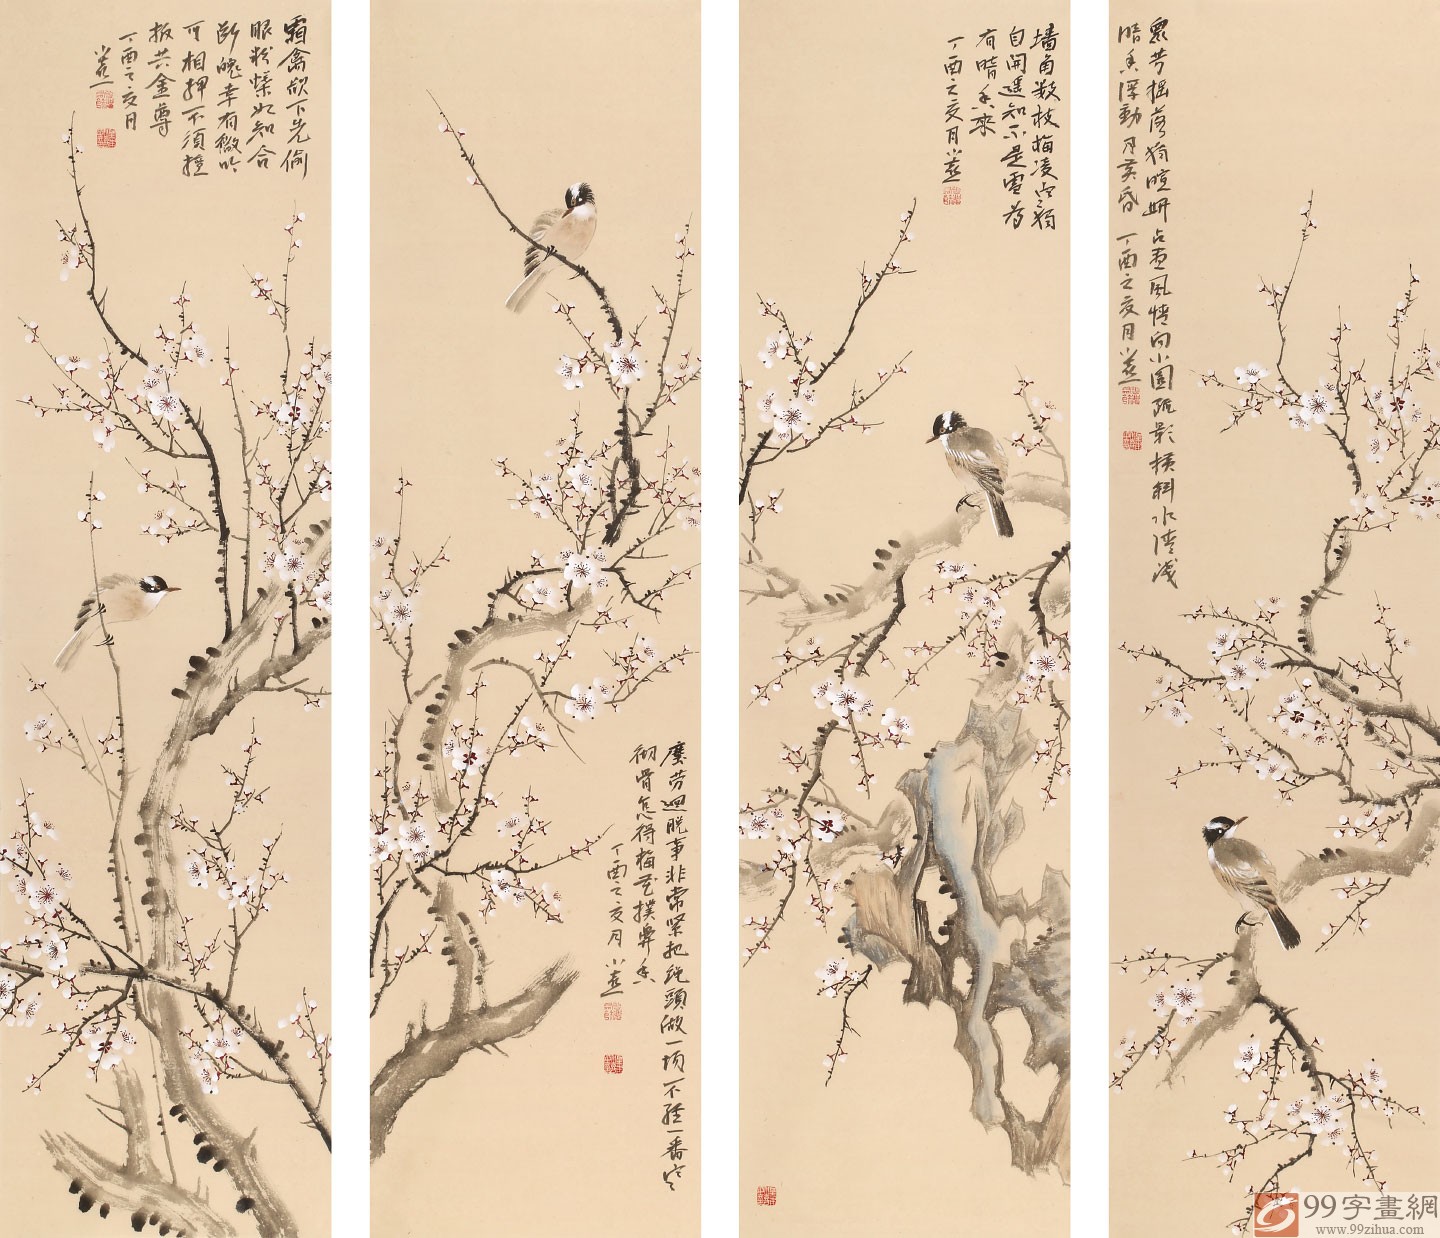 眾芳摇落独暄妍占尽風情向小園疏影横斜水清浅
暗香浮動月黄昏 丁酉之亥月小
墙角数枝梅凌寒独
自開遥知不是雪為
有暗香來
丁酉之亥月小
塵劳迴脱事非常緊把绳頭做一場不經一番寒
彻骨怎得梅花撲鼻香
丁酉之亥月小
霜禽欲下先偷
眼粉蝶如知合
断魂幸有微吟
可相狎不須檀
板共金尊
丁酉之亥月
小
99字畫網
www.99zihua.com